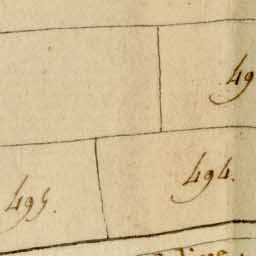 49
494.
495.